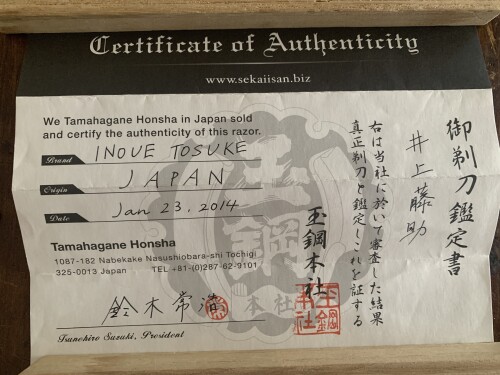 Certificate of Authenticity
www.sekaiisan.biz
We Tamahagane Honsha in Japan sold
and certify the authenticity of this razor.
Brand INOUE TOSUKE
Origin JAPAN
Date Jan 23, 2014
Tamahagane Honsha
1087-182 Nabekake Nasushiobara-shi Tochigi
325-0013 Japan TEL +81-(0)287-62-9101
鈴木常清
Tsunehiro Suzuki, President
御剃刀鑑定書
井上藤助
右は当社に於いて審査した結果
真正剃刀と鑑定しこれを証する
玉鋼本社
玉鋼本社
玉鋼
本社